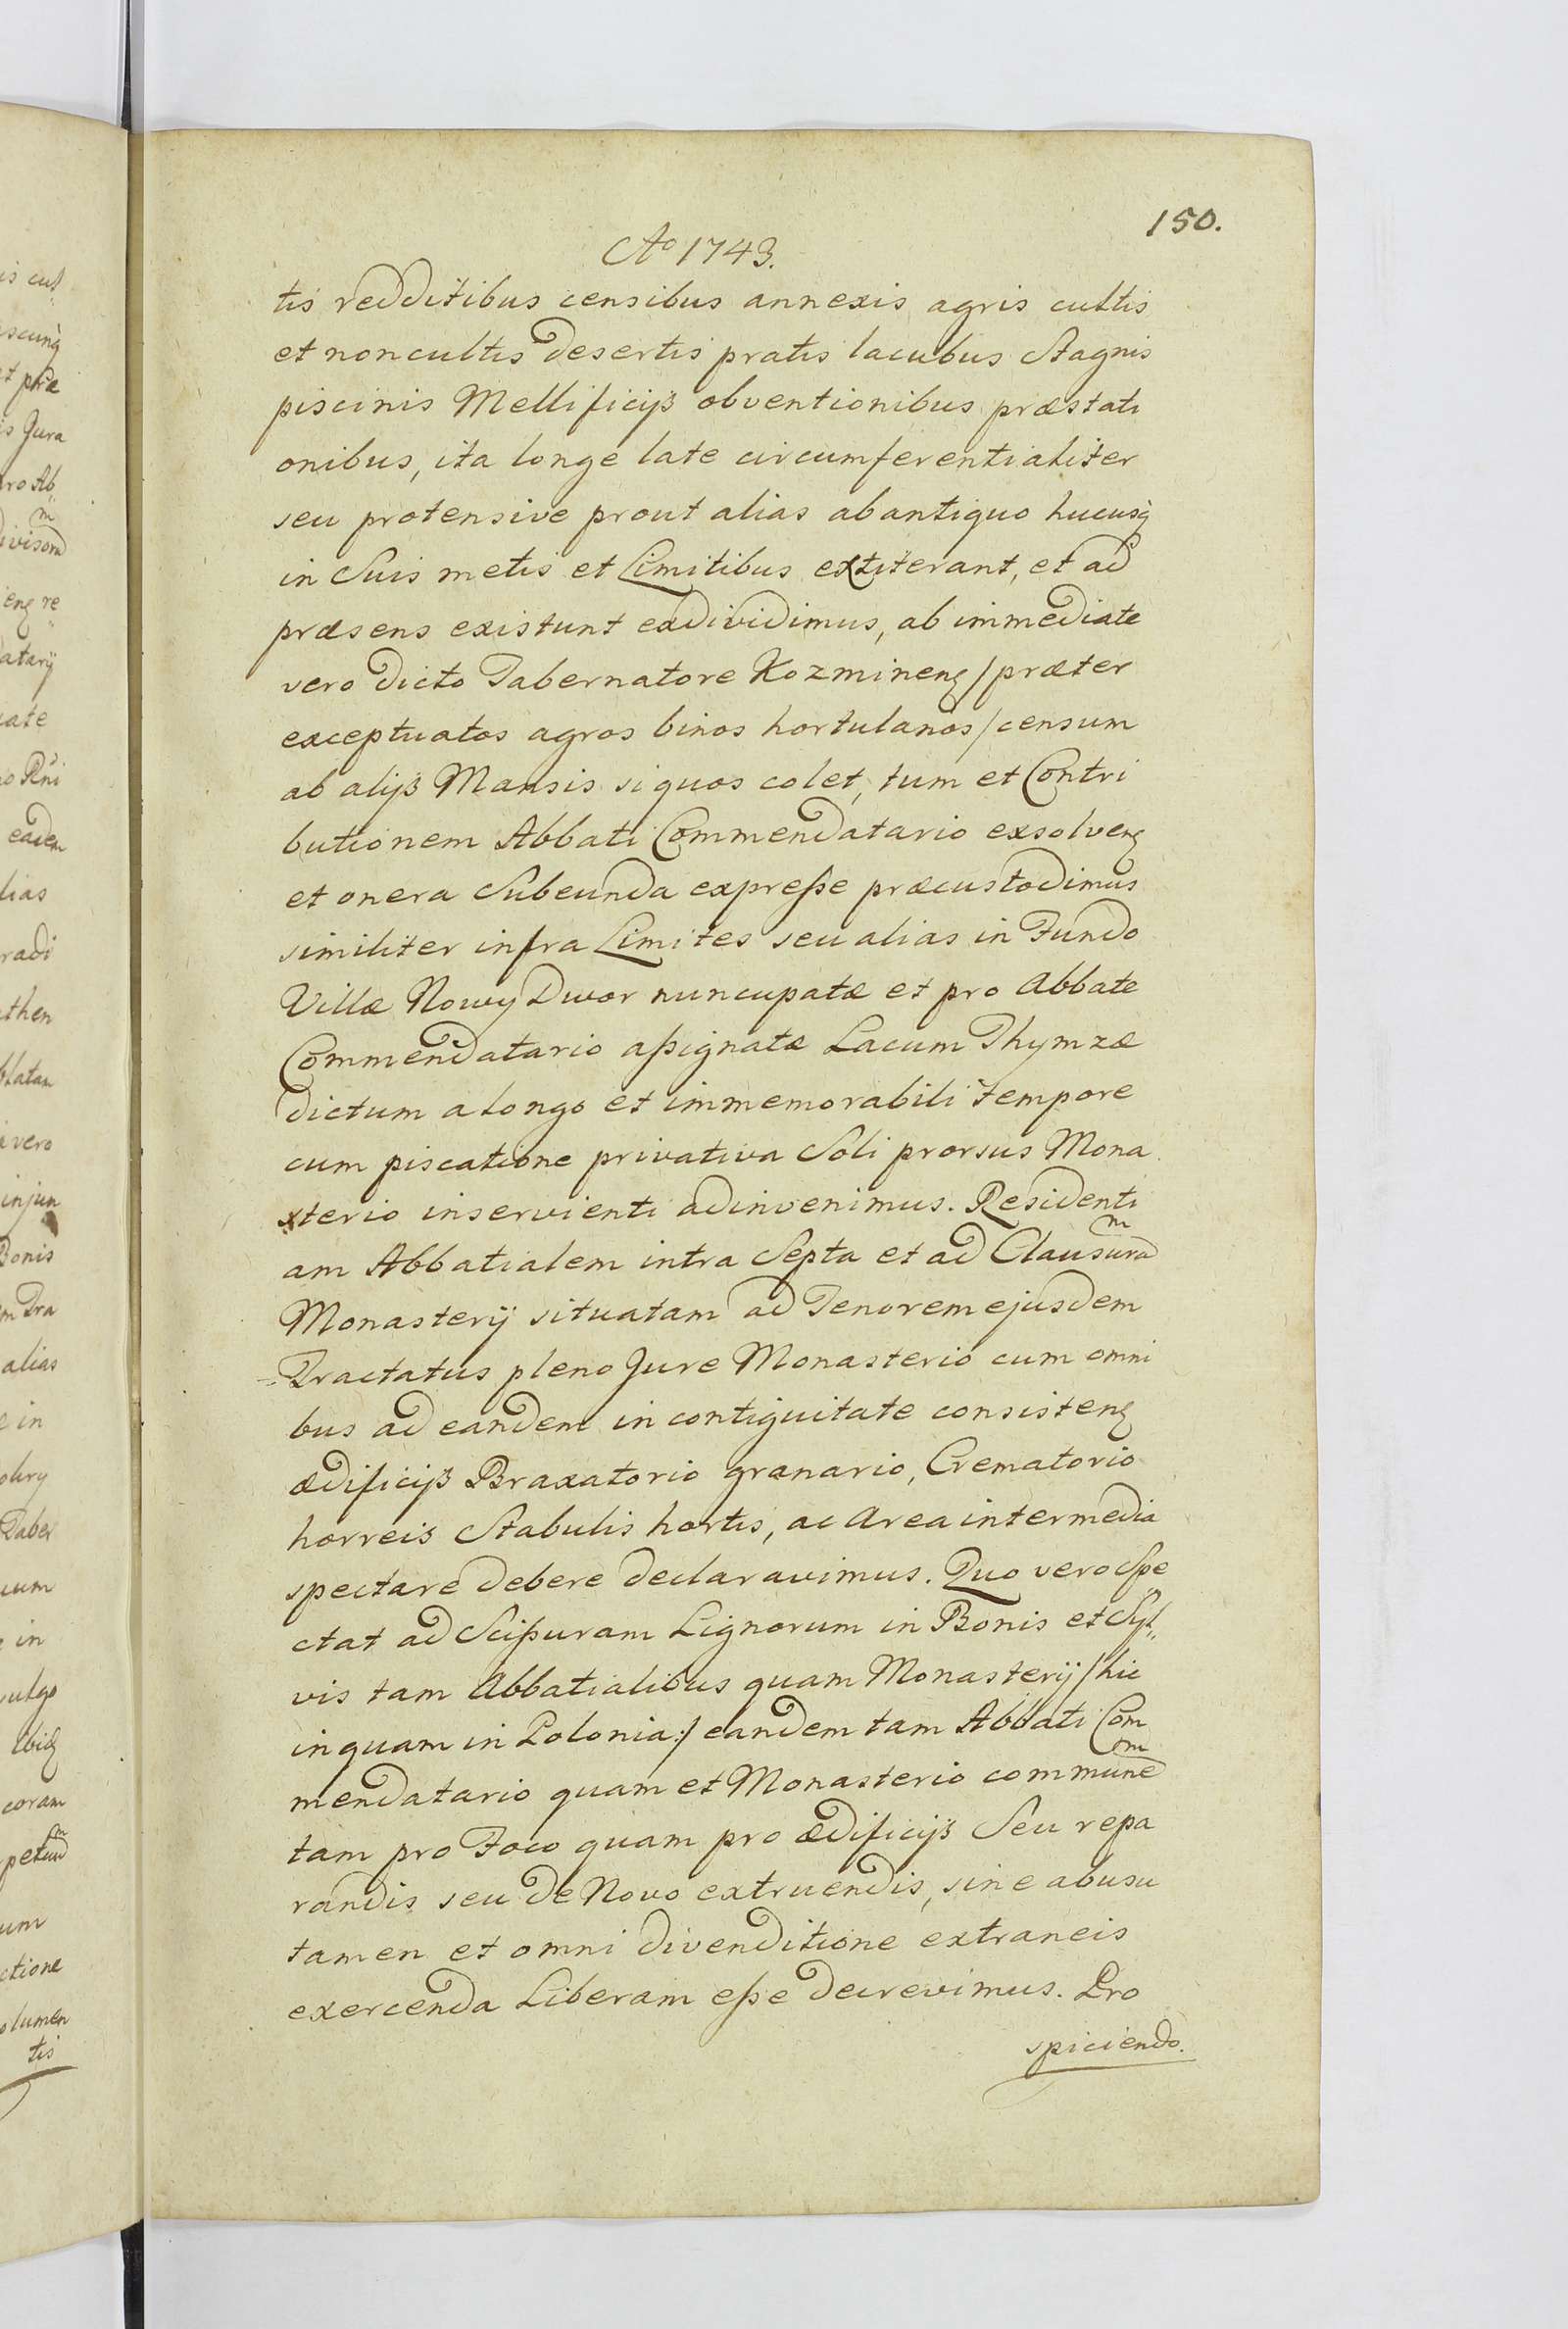 150.
Ao 1743.
tis redditibus censibus annexis agris cultis
et non cultis desertis pratis lacubus Stagnis
piscinis Mellificijs obventionibus præstati
onibus, ita longe late circumferentialiter
seu protensive prout alias ab antiquo hucusq
in Suis metis et Limitibus extiterant, et ad
præsens existunt exdividimus, ab immediate
vero dicto Tabernatore Kozminenſ / præter
exceptuatos agros binos hortulanos / censum
ab alijs Mansis si quos colet, tum et Contri
butionem Abbati Commendatario exsolvenſ
et onera Subeunda expreße præcustodimus
similiter infra Limites seu alias in Fundo
Villæ Nowy Dwor nuncupatæ et pro Abbate
Commendatario aßignatæ Lacum Thymzæ
dictum a longo et immemorabili tempore
cum piscatione privativa Soli prorsus Mona
sterio inservienti adinvenimus. Residenti
am Abbatialem intra Septa et ad Clausuram
Monasterij situatam ad Tenorem ejusdem
Tractatus pleno Jure Monasterio cum omni
bus ad eandem in contiguitate consistenſ
ædificijs Braxatorio granario, Crematorio
horreis Stabulis hortis, ac Area intermedia
spectare debere declaravimus. Quo vero Spe
ctat ad Scißuram Lignorum in Bonis et Syl„
vis tam Abbatialibus quam Monasterij / hic
inquam in Polonia:/ eandem tam Abbati Com
mendatario quam et Monasterio communem
tam pro Foco quam pro ædificijs Seu repa
randis seu de Novo extruendis, sine abusu
tamen et omni divenditione extraneis
exercenda Liberam eße decrevimus. Pro
spiciendo.